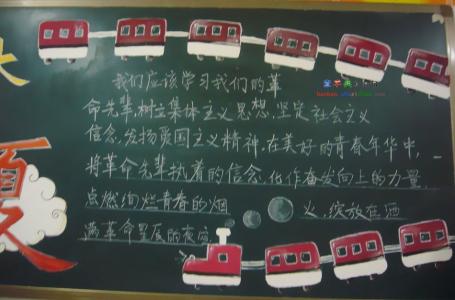 我们应该学习我们的革
命先辈,树立集体主义思想,坚定社会主义
信念,发扬爱国主义精神,在美好的青春年华中,
将革命先辈执着的信念,化作奋发向上的力量,
点燃绚烂青春的烟 火,绽放在洒
满革命星辰的夜空